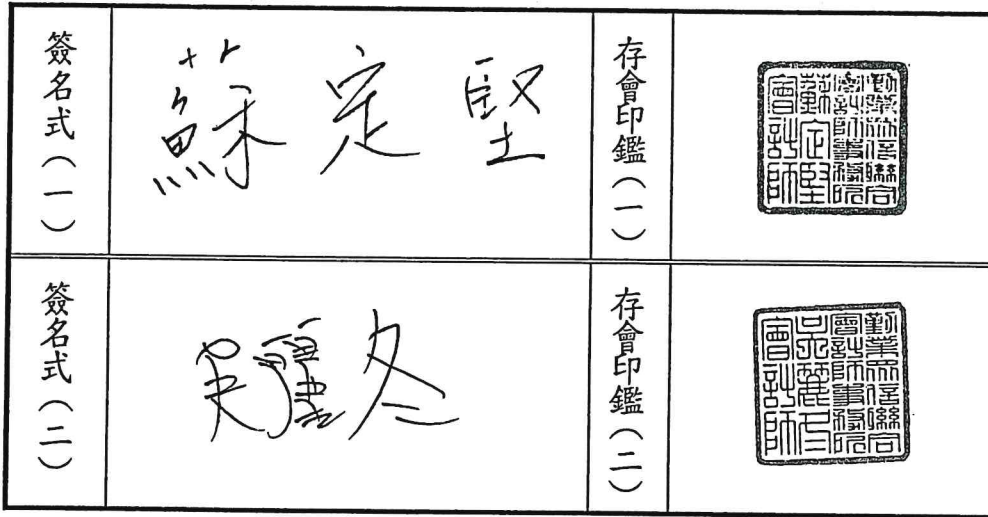 簽名式（一）
蘇定堅
存會印鑑（一）
勤業眾信聯合
會計師事務所
蘇定堅
會計師
簽名式（二）
吳麗冬
存會印鑑（二）
勤業眾信聯合
會計師事務所
吳麗冬
會計師